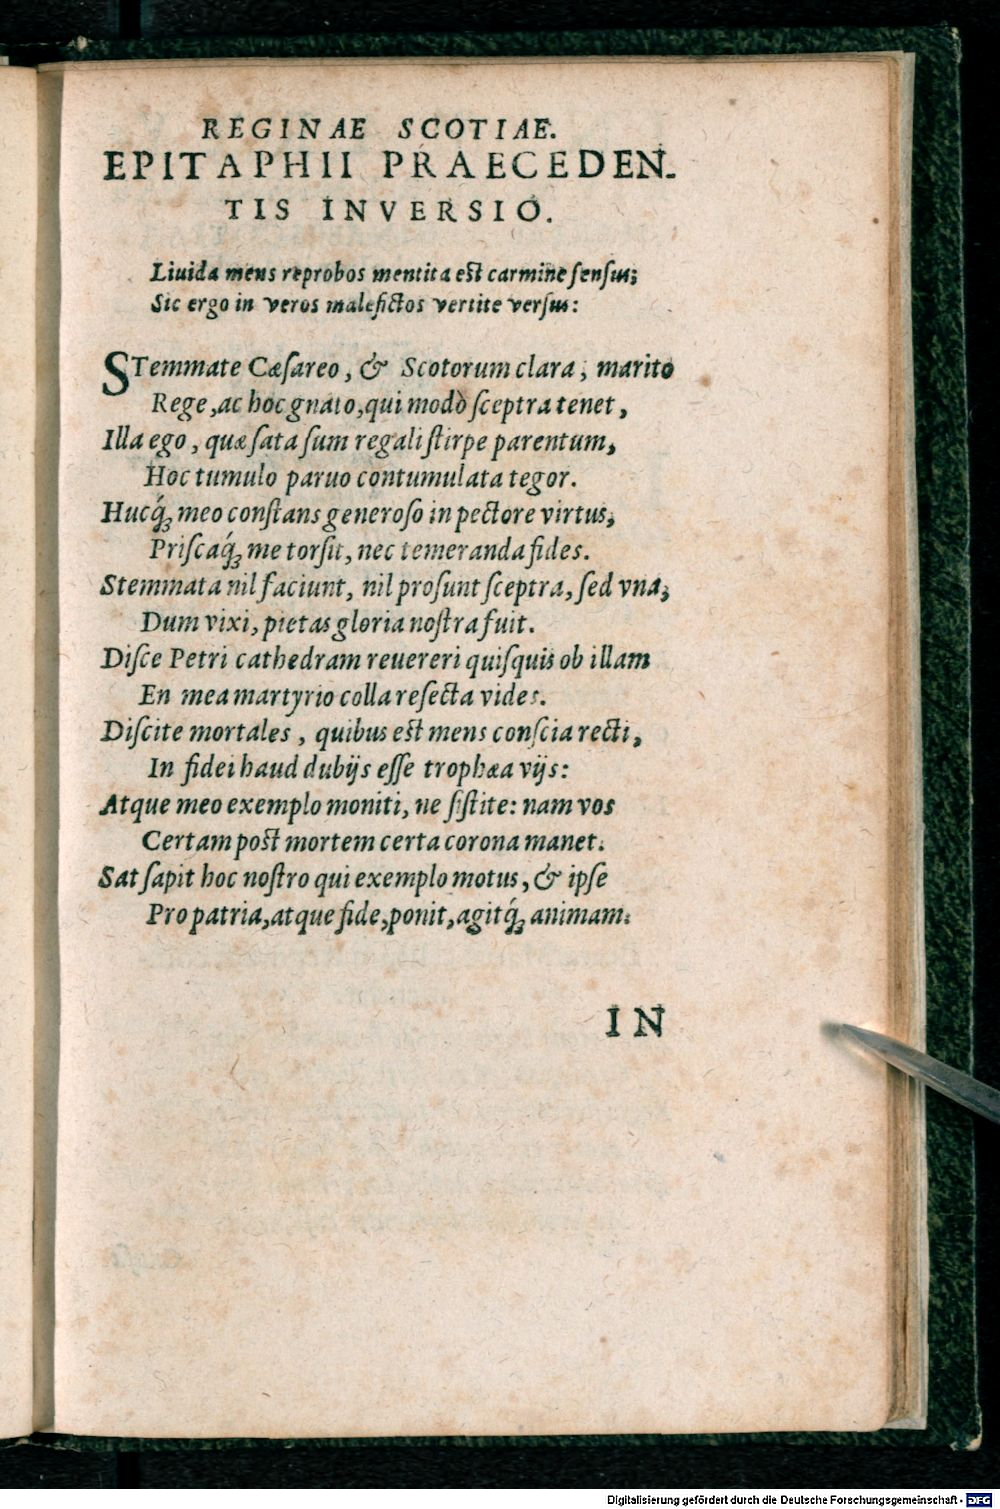 REGINAE SCOTIAE.
EPITAPHII PRAECEDEN-
TIS INVERSIO.
Liuida mens reprobos mentita est carmine sensus;
Sic ergo in veros malefictos vertite versus:
STemmate Cæsareo, & Scotorum clara, marito
Rege, ac hoc gnato, qui modò sceptra tenet,
Illa ego, quæ sata sum regali stirpe parentum,
Hoc tumulo paruo contumulata tegor.
Hucq́; meo constans generoso in pectore virtus,
Priscaq́; me torsit, nec temeranda fides.
Stemmata nil faciunt, nil prosunt sceptra, sed vna,
Dum vixi, pietas gloria nostra fuit.
Disce Petri cathedram reuereri quisquis ob illam
En mea martyrio colla resecta vides.
Discite mortales, quibus est mens conscia recti,
In fidei haud dubijs esse trophæa vijs:
Atque meo exemplo moniti, ne sistite: nam vos
Certam post mortem certa corona manet.
Sat sapit hoc nostro qui exemplo motus, & ipse
Pro patria, atque fide, ponit, agitq́; animam.
IN
Digitalisierung gefördert durch die Deutsche Forschungsgemeinschaft - DFG